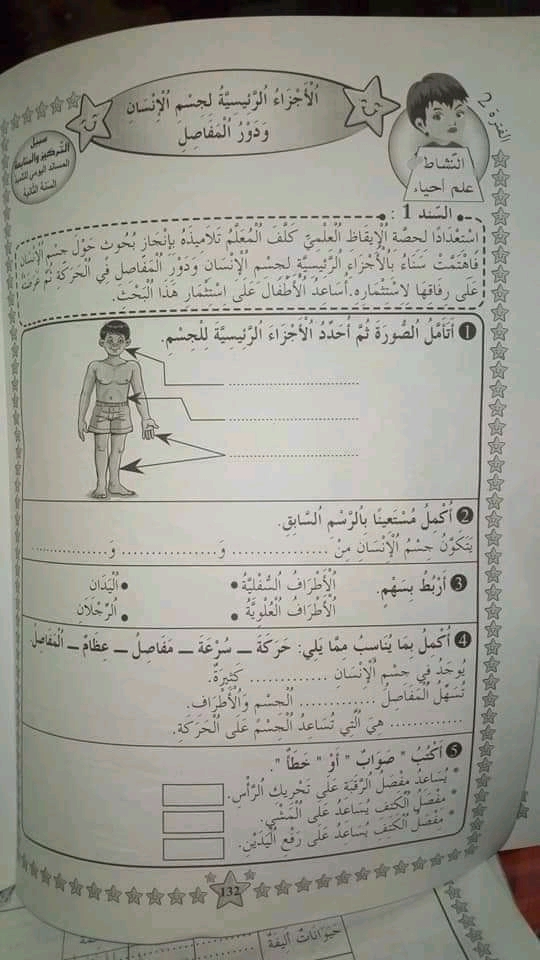 الفترة 2
اَلْأَجْزَاءُ اُلرَّئِيسِيَّةُ لِجِسْمِ اُلْإِنْسَانِ
وَدَوْرُ اُلْمَفَاصِلِ
النّشاط
علم أحياء
سبيل
التركيز والمتابعة
المساند اليومي للتلميذ
السنة الثانية
السّند 1 :
اسْتِعْدَادًا لِحِصَّةِ اُلْإِيقَاظِ اُلْعِلْمِيِّ كَلَّفَ اُلْمُعَلِّمُ تَلَامِيذَهُ بِإِنْجَازِ بُحُوثٍ حَوْلَ جِسْمِ اُلْإِنْسَانِ
فَاهْتَمَّتْ سَنَاءُ بِالْأَجْزَاءِ اُلرَّئِيسِيَّةِ لِجِسْمِ اُلْإِنْسَانِ وَدَوْرِ اُلْمَفَاصِلِ فِي اُلْحَرَكَةِ ثُمَّ عَرَضَتْهُ
عَلَى رِفَاقِهَا لِاسْتِثْمَارِهِ. أُسَاعِدُ اُلْأَطْفَالَ عَلَى اسْتِثْمَارِ هَذَا اُلْبَحْثِ.
1 أَتَأَمَّلُ اُلصُّورَةَ ثُمَّ أُحَدِّدُ اُلْأَجْزَاءَ اُلرَّئِيسِيَّةَ لِلْجِسْمِ.
..............................
..............................
..............................
2 أُكْمِلُ مُسْتَعِينًا بِالرَّسْمِ اُلسَّابِقِ.
يَتَكَوَّنُ جِسْمُ اُلْإِنْسَانِ مِنْ ................ وَ................ وَ................
3 أَرْبِطُ بِسَهْمٍ. اُلْأَطْرَافُ اُلسُّفْلِيَّةُ • • اُلْيَدَانِ
اُلْأَطْرَافُ اُلْعُلْوِيَّةُ • • اُلرِّجْلَانِ
4 أُكْمِلُ بِمَا يُنَاسِبُ مِمَّا يَلِي: حَرَكَةَ ـ سُرْعَةَ ـ مَفَاصِلُ ـ عِظَامٌ ـ اُلْمَفَاصِلُ.
يُوجَدُ فِي جِسْمِ اُلْإِنْسَانِ ............ كَثِيرَةٌ.
تُسَهِّلُ اُلْمَفَاصِلُ ............ اُلْجِسْمِ وَاُلْأَطْرَافِ.
............ هِيَ اُلَّتِي تُسَاعِدُ اُلْجِسْمَ عَلَى اُلْحَرَكَةِ.
5 أَكْتُبُ " صَوَابٌ " أَوْ " خَطَأٌ ".
* يُسَاعِدُ مِفْصَلُ اُلرَّقَبَةِ عَلَى تَحْرِيكِ اُلرَّأْسِ.
* مِفْصَلُ اُلْكَتِفِ يُسَاعِدُ عَلَى اُلْمَشْيِ.
* مِفْصَلُ اُلْكَتِفِ يُسَاعِدُ عَلَى رَفْعِ اُلْيَدَيْنِ.
132
حَيَوَانَاتٌ أَلِيفَةٌ